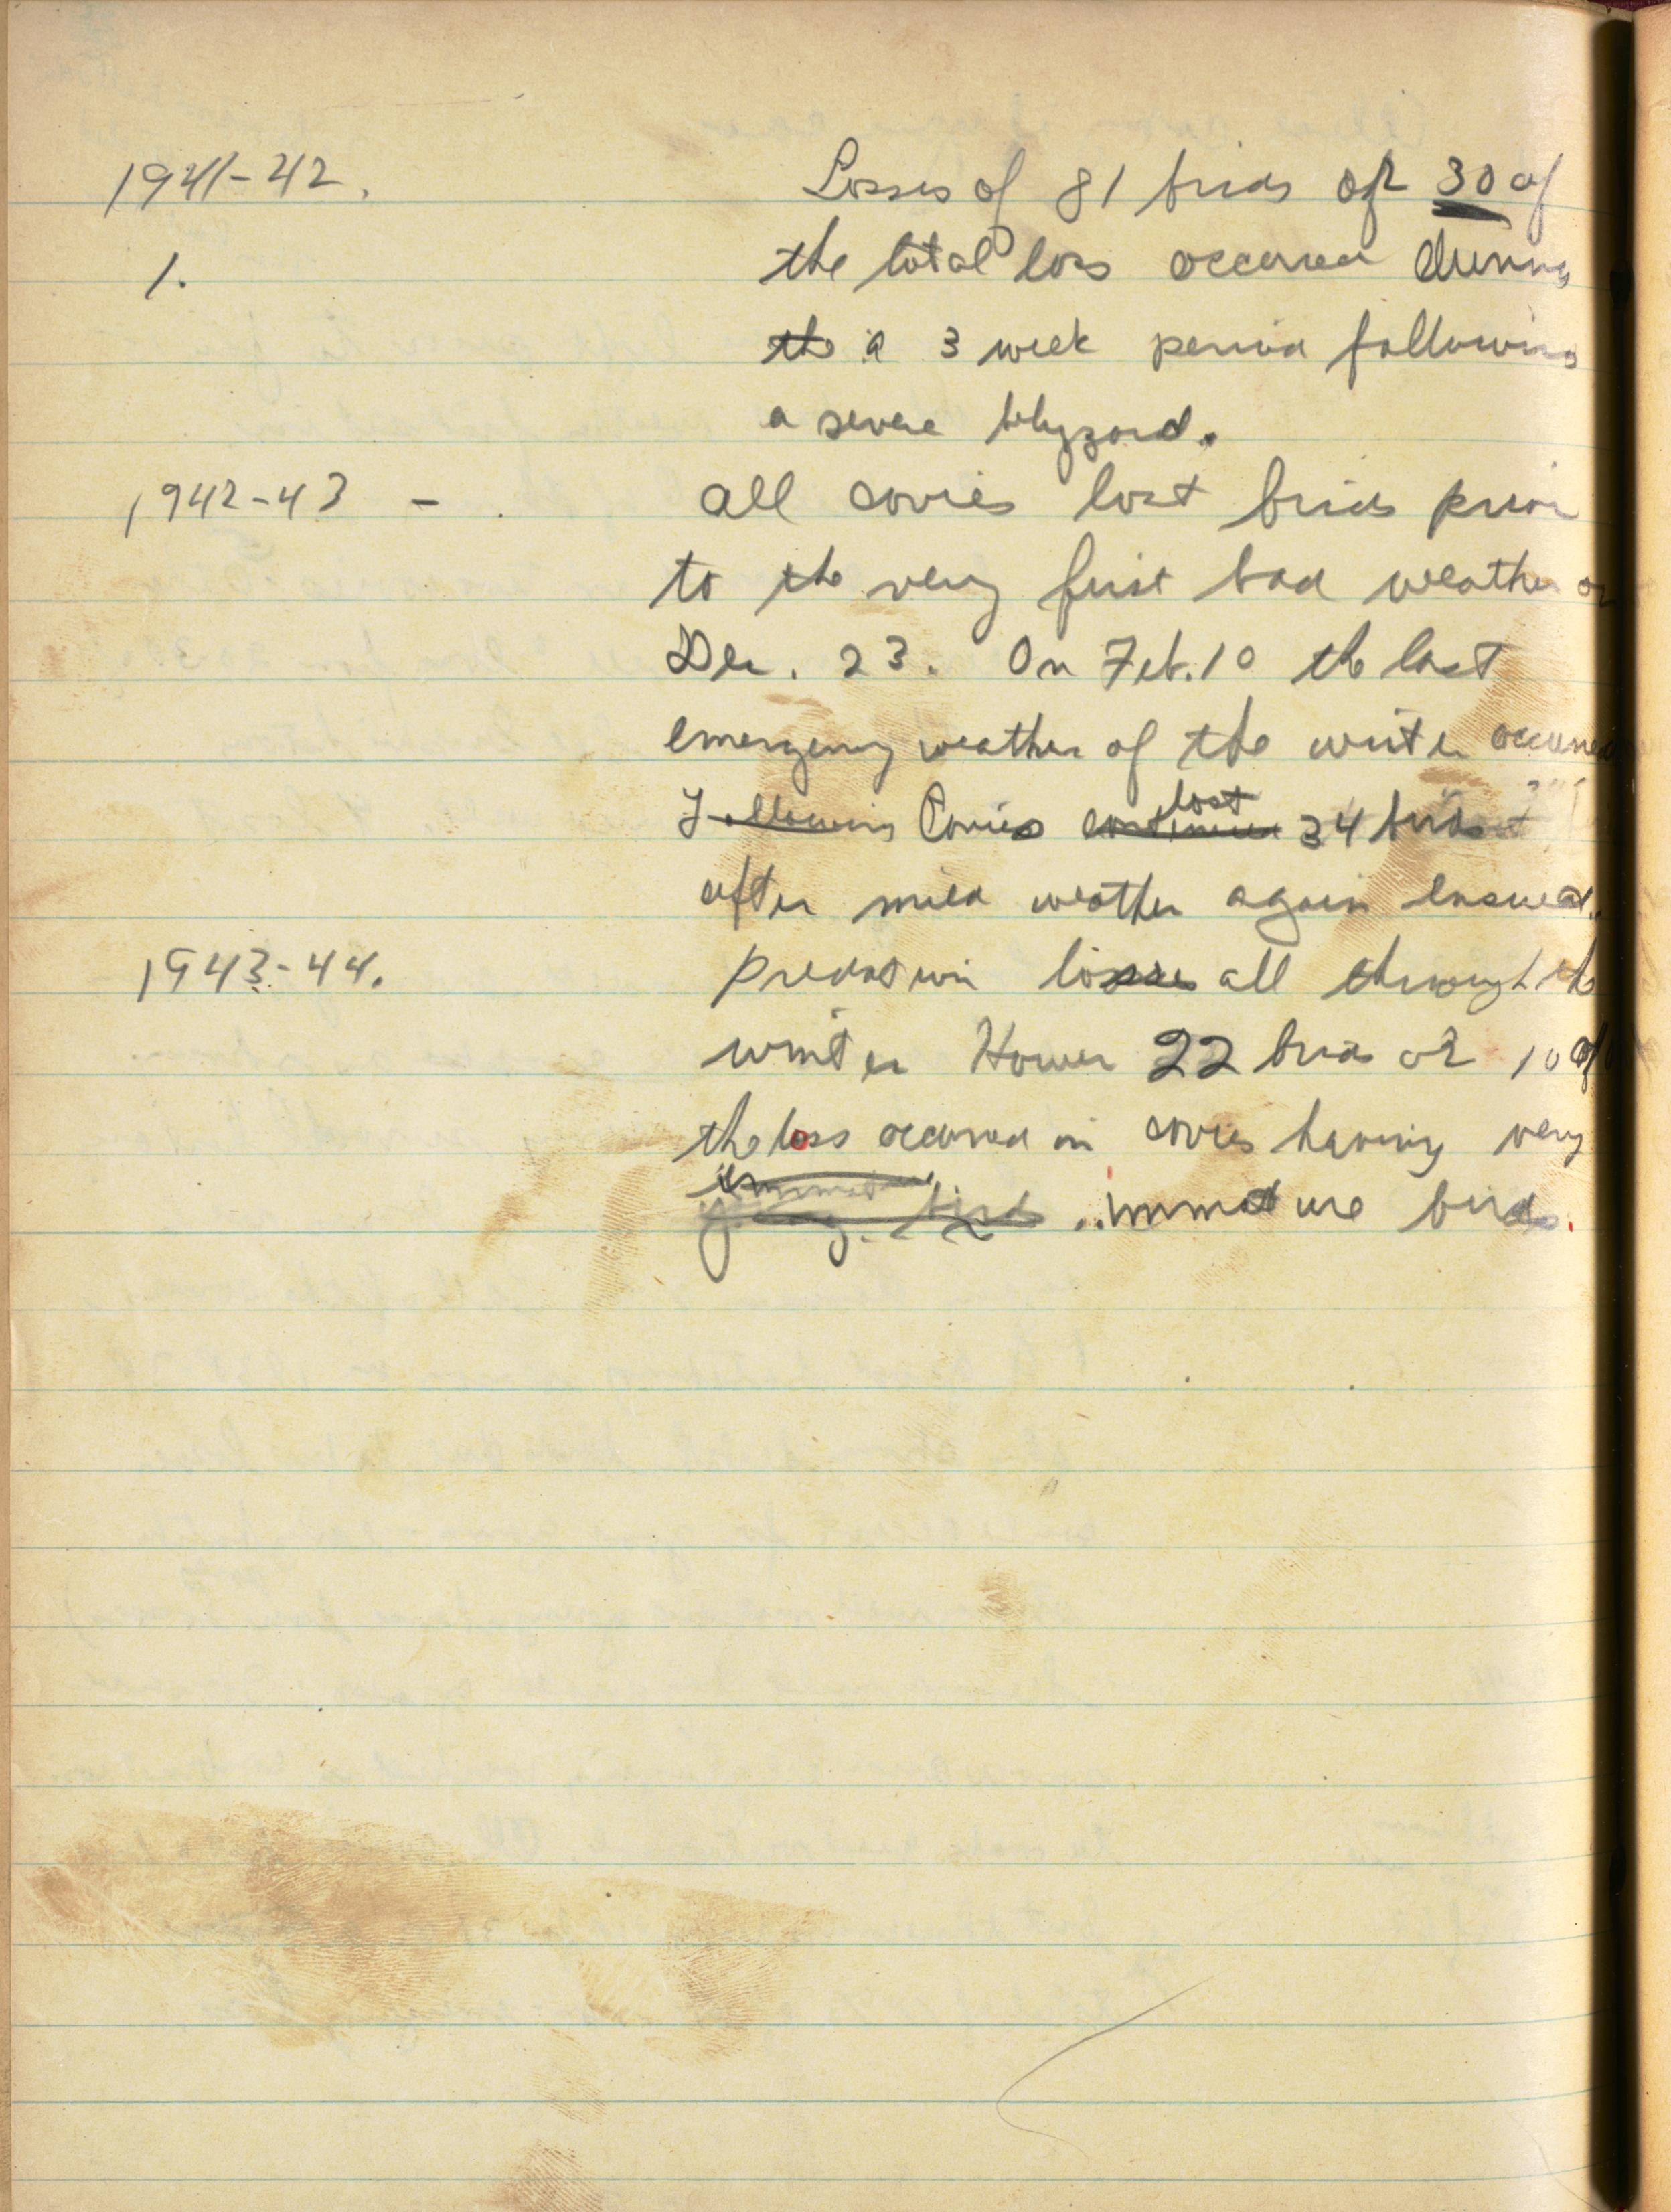 1941-42. Losses of 81 birds or 30 of
1. the total loss occurred during
the a 3 week period following
a severe blyzard.
1942-43 - all covies lost birds prior
to the very first bad weather on
Dec. 23. On Feb. 10 the last
emergency weather of the winter occurred
lost
Following Covies continued 34 birds
after mild weather again ensued.
1943-44. predation losses all through the
winter Hower 22 birds or 10 of
the loss occured in covies having very
immat
young birds immature birds.